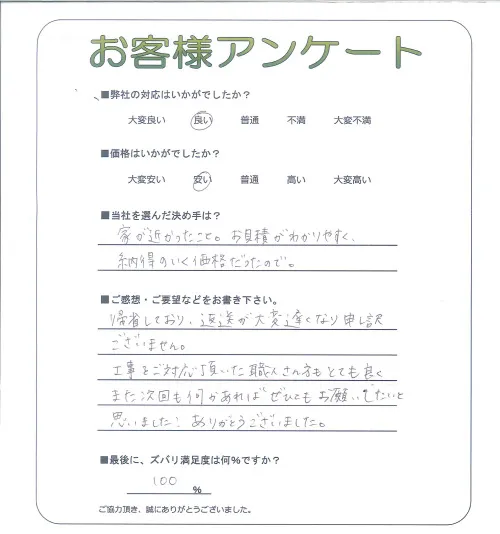 お客様アンケート
■弊社の対応はいかがでしたか？
大変良い 良い 普通 不満 大変不満
■価格はいかがでしたか？
大変安い 安い 普通 高い 大変高い
■当社を選んだ決め手は？
家が近かったこと。お見積がわかりやすく、
納得のいく価格だったので。
■ご感想・ご要望などをお書き下さい。
帰省しており、返送が大変遅くなり申し訳
ございません。
工事をご対応頂いた職人さん方もとても良く
また次回も何かあればぜひともお願いしたいと
思いました！ありがとうございました。
■最後に、ズバリ満足度は何%ですか？
100 %
ご協力頂き、誠にありがとうございました。